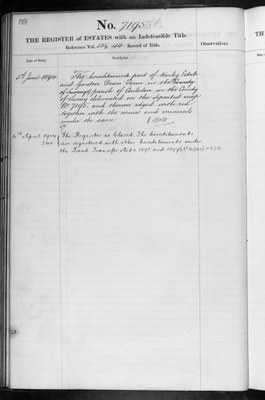 89
No. 7195
THE REGISTER of ESTATES with an Indefeasible Title
Reference Vol. Record of Title.
Date of Entry.
Description
Observations.
June 1894
The hereditaments part of Kenley Estate
and Garston Down Farm in the
parish of Coulsdon in the County
of Surrey delineated on the deposited map
No. 7195 and thereon edged with red
together with the mines and minerals
under the same
April 1904
The Register is closed The hereditaments
are registered with other hereditaments under
the Land Transfer Acts 1875 and 1897